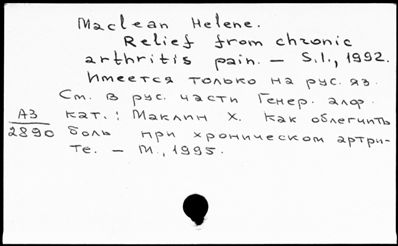 Maclean Helene.
Relief from chronic
arthritis pain. – S.l., 1992.
Имеется только на рус. яз.
См. в рус. части Генер. алф.
АЗ кат.: Маклин Х. Как облегчить
2890 боль при хроническом артри-
те. – М., 1995.